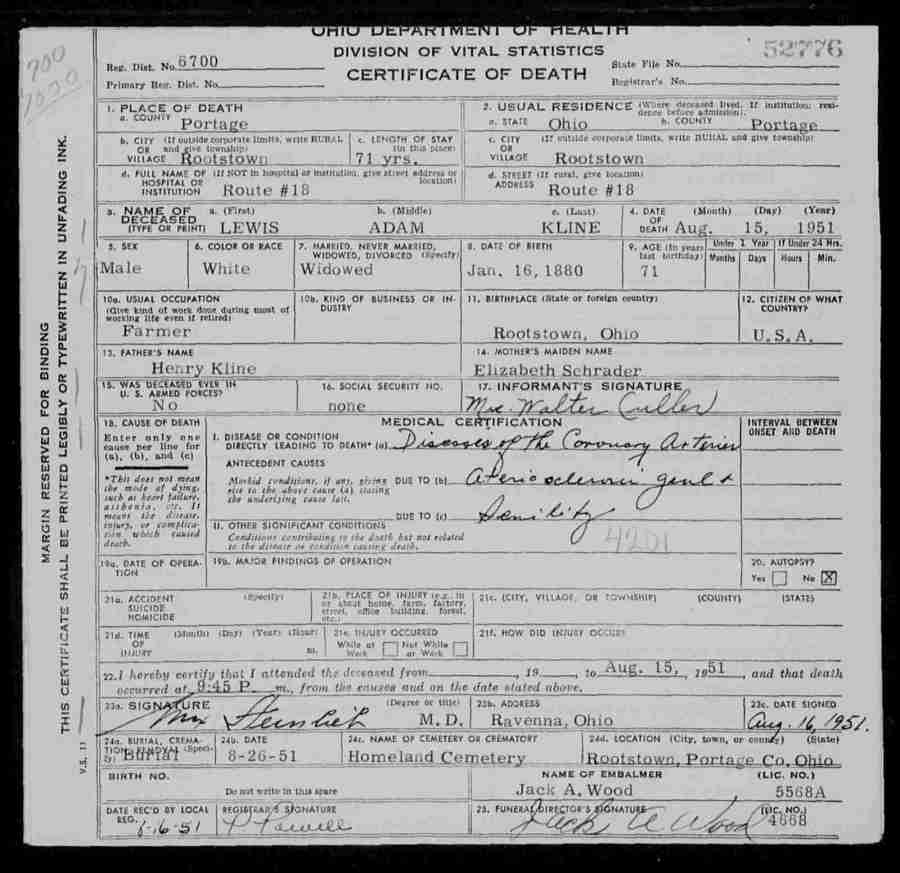 OHIO DEPARTMENT OF HEALTH
DIVISION OF VITAL STATISTICS
CERTIFICATE OF DEATH
700
7020
Reg. Dist. No. 6700
Primary Reg. Dist. No.
State File No.
52776
Registrar's No.
MARGIN RESERVED FOR BINDING
THIS CERTIFICATE SHALL BE PRINTED LEGIBLY OR TYPEWRITTEN IN UNFADING INK.
V.S. 11
1. PLACE OF DEATH
a. COUNTY Portage
2. USUAL RESIDENCE (Where deceased lived. If institution: residence before admission).
a. STATE Ohio b. COUNTY Portage
b. CITY (If outside corporate limits, write RURAL
OR and give township)
VILLAGE Rootstown
c. LENGTH OF STAY
(in this place)
71 yrs.
c. CITY (If outside corporate limits, write RURAL and give township)
OR
VILLAGE Rootstown
d. FULL NAME OF (If NOT in hospital or institution, give street address or location)
HOSPITAL OR
INSTITUTION Route #18
d. STREET (If rural, give location)
ADDRESS Route #18
3. NAME OF DECEASED (TYPE OR PRINT)
a. (First) LEWIS
b. (Middle) ADAM
c. (Last) KLINE
4. DATE OF DEATH (Month) (Day) (Year)
Aug. 15, 1951
5. SEX
Male
6. COLOR OR RACE
White
7. MARRIED, NEVER MARRIED,
WIDOWED, DIVORCED (Specify)
Widowed
8. DATE OF BIRTH
Jan. 16, 1880
9. AGE (In years last birthday)
71
Under 1 Year
Months Days
If Under 24 Hrs.
Hours Min.
10a. USUAL OCCUPATION
(Give kind of work done during most of
working life even if retired)
Farmer
10b. KIND OF BUSINESS OR INDUSTRY
11. BIRTHPLACE (State or foreign country)
Rootstown, Ohio
12. CITIZEN OF WHAT COUNTRY?
U.S.A.
13. FATHER'S NAME
Henry Kline
14. MOTHER'S MAIDEN NAME
Elizabeth Schrader
15. WAS DECEASED EVER IN
U. S. ARMED FORCES?
No
16. SOCIAL SECURITY NO.
none
17. INFORMANT'S SIGNATURE
Mrs. Walter Culler
18. CAUSE OF DEATH
Enter only one
cause per line for
(a), (b), and (c)
*This does not mean
the mode of dying,
such as heart failure,
asthenia, etc. It
means the disease,
injury, or complication which caused
death.
MEDICAL CERTIFICATION
INTERVAL BETWEEN
ONSET AND DEATH
I. DISEASE OR CONDITION
DIRECTLY LEADING TO DEATH* (a) Diseases of the Coronary Arteries
ANTECEDENT CAUSES
Morbid conditions, if any, giving
rise to the above cause (a) stating
the underlying cause last.
DUE TO (b) Aterio sclerosis genl +
DUE TO (c) Senility
II. OTHER SIGNIFICANT CONDITIONS
Conditions contributing to the death but not related
to the disease or condition causing death.
4201
19a. DATE OF OPERATION
19b. MAJOR FINDINGS OF OPERATION
20. AUTOPSY?
Yes No X
21a. ACCIDENT (Specify)
SUICIDE
HOMICIDE
21b. PLACE OF INJURY (e.g., in
or about home, farm, factory,
street, office building, forest,
etc.)
21c. (CITY, VILLAGE, OR TOWNSHIP) (COUNTY) (STATE)
21d. TIME (Month) (Day) (Year) (Hour)
OF
INJURY m.
21e. INJURY OCCURRED
While at Work Not While at Work
21f. HOW DID INJURY OCCUR?
22. I hereby certify that I attended the deceased from , 19 , to Aug. 15, , 1951 , and that death
occurred at 9:45 P m., from the causes and on the date stated above.
23a. SIGNATURE (Degree or title)
M.D.
23b. ADDRESS
Ravenna, Ohio
23c. DATE SIGNED
Aug. 16, 1951.
24a. BURIAL, CREMATION, REMOVAL (Specify)
Burial
24b. DATE
8-26-51
24c. NAME OF CEMETERY OR CREMATORY
Homeland Cemetery
24d. LOCATION (City, town, or county) (State)
Rootstown, Portage Co. Ohio
BIRTH NO.
Do not write in this space
NAME OF EMBALMER (LIC. NO.)
Jack A. Wood 5568A
DATE REC'D BY LOCAL REG.
REGISTRAR'S SIGNATURE
25. FUNERAL DIRECTOR'S SIGNATURE (LIC. NO.)
Jack A Wood 4668